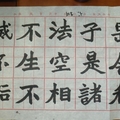 是舍利
子是諸
法空相
不生不
滅不垢